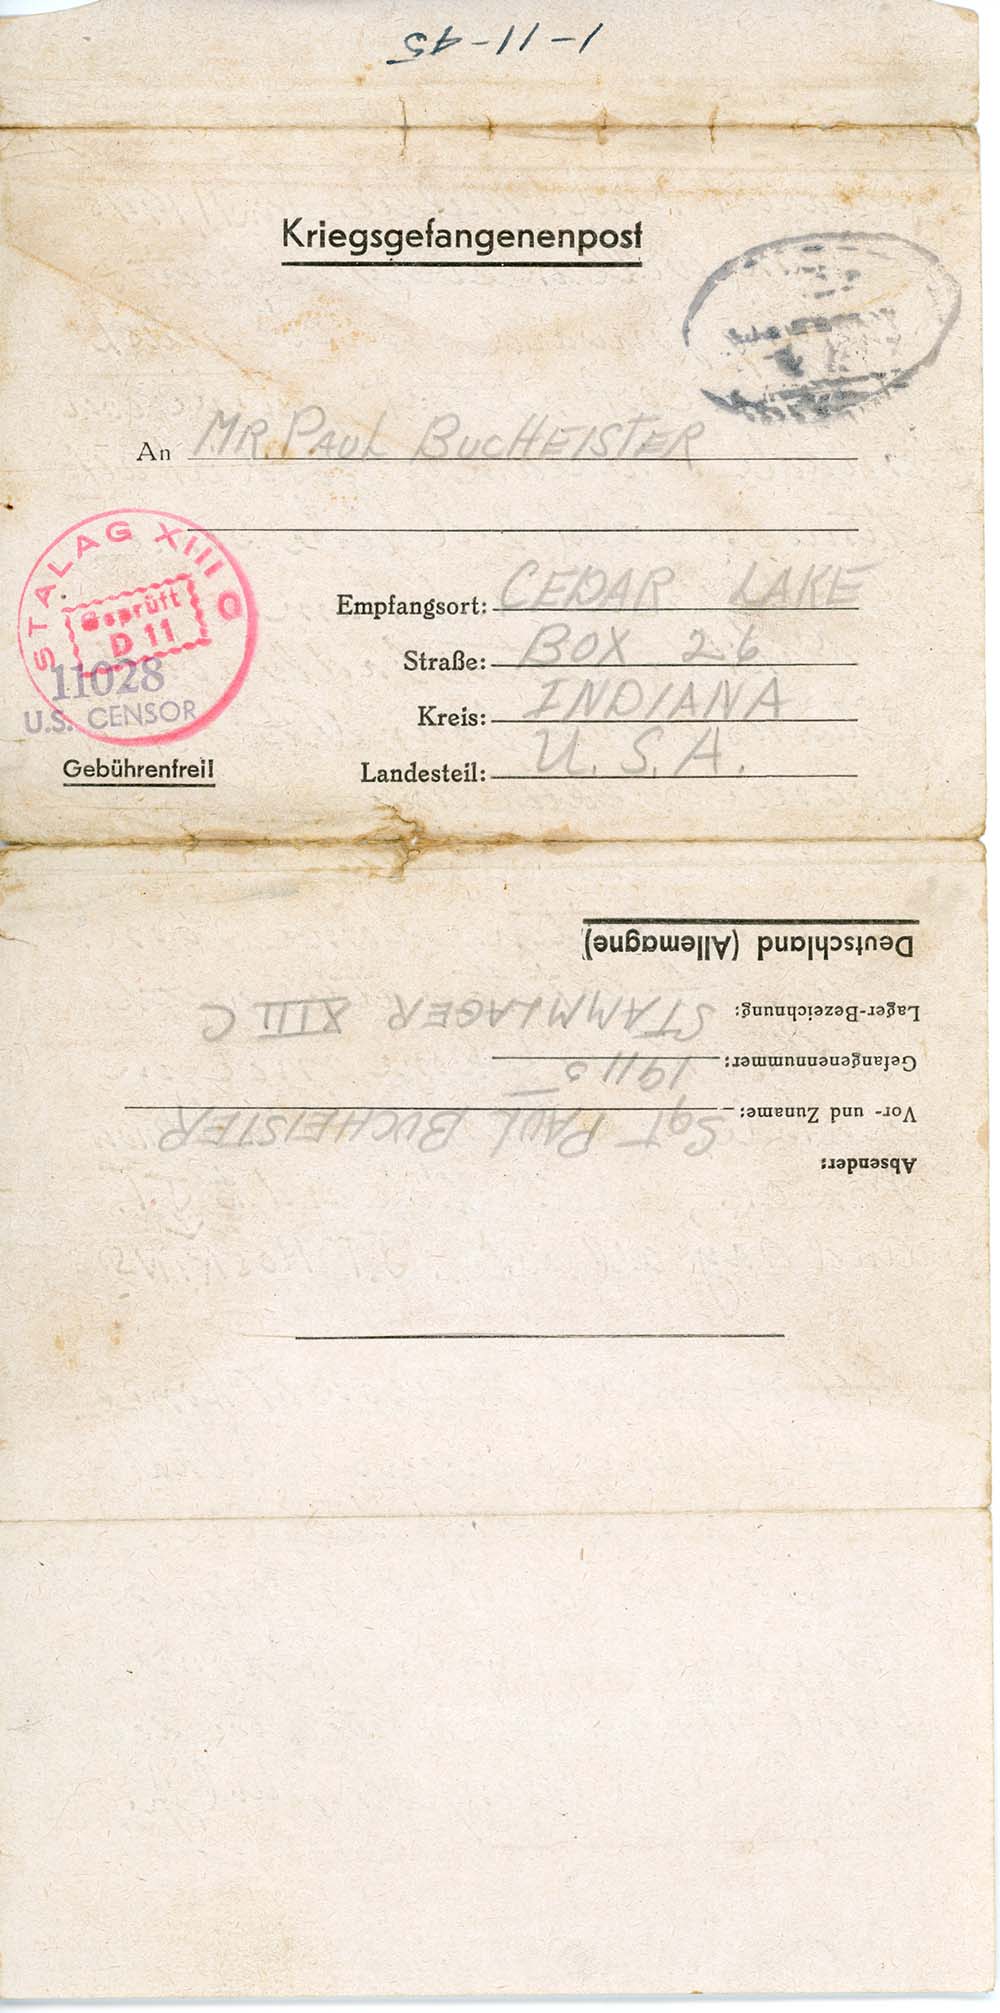 1-11-45
Kriegsgefangenenpost
An MR. PAUL BUCHEISTER
STALAG XIII
Geprüft
D 11
11028
U.S. CENSOR
Empfangsort: CEDAR LAKE
Straße: BOX 26
Kreis: INDIANA
Landesteil: U.S.A.
Gebührenfrei!
Absender:
Vor- und Zuname: SGT PAUL BUCHEISTER
Gefangenennummer:
Lager-Bezeichnung: STAMMLAGER XIII C
Deutschland (Allemagne)